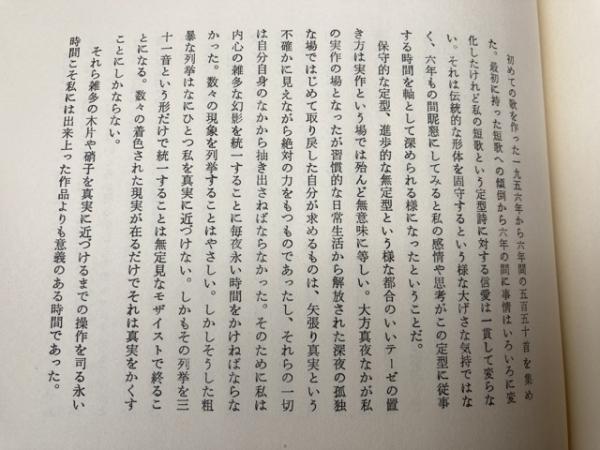 初めての歌を作った一九五六年から六年間の五百五十首を集め
た。最初に持った短歌への傾倒から六年の間に事情はいろいろに変
化したけれど私の短歌という定型詩に対する信愛は一貫して変らな
い。それは伝統的な形体を固守するという様な大げさな気持ではな
く、六年もの間昵懇にしてみると私の感情や思考がこの定型に従事
する時間を軸として深められる様になったということだ。
保守的な定型、進歩的な無定型という様な都合のいいテーゼの置
き方は実作という場では殆んど無意味に等しい。大方真夜なかが私
の実作の場となったが習慣的な日常生活から解放された深夜の孤独
な場ではじめて取り戻した自分が求めるものは、矢張り真実という
不確かに見えながら絶対の力をもつものであったし、それらの一切
は自分自身のなかから抽き出さねばならなかった。そのために私は
内心の雑多な幻影を統一することに毎夜永い時間をかけねばならな
かった。数々の現象を列挙することはやさしい。しかしそうした粗
暴な列挙はなにひとつ私を真実に近づけない。しかもその列挙を三
十一音という形だけで統一することは無定見なモザイストで終るこ
とになる。数々の着色された現実が在るだけでそれは真実をかくす
ことにしかならない。
それら雑多の木片や硝子を真実に近づけるまでの操作を司る永い
時間こそ私には出来上った作品よりも意義のある時間であった。